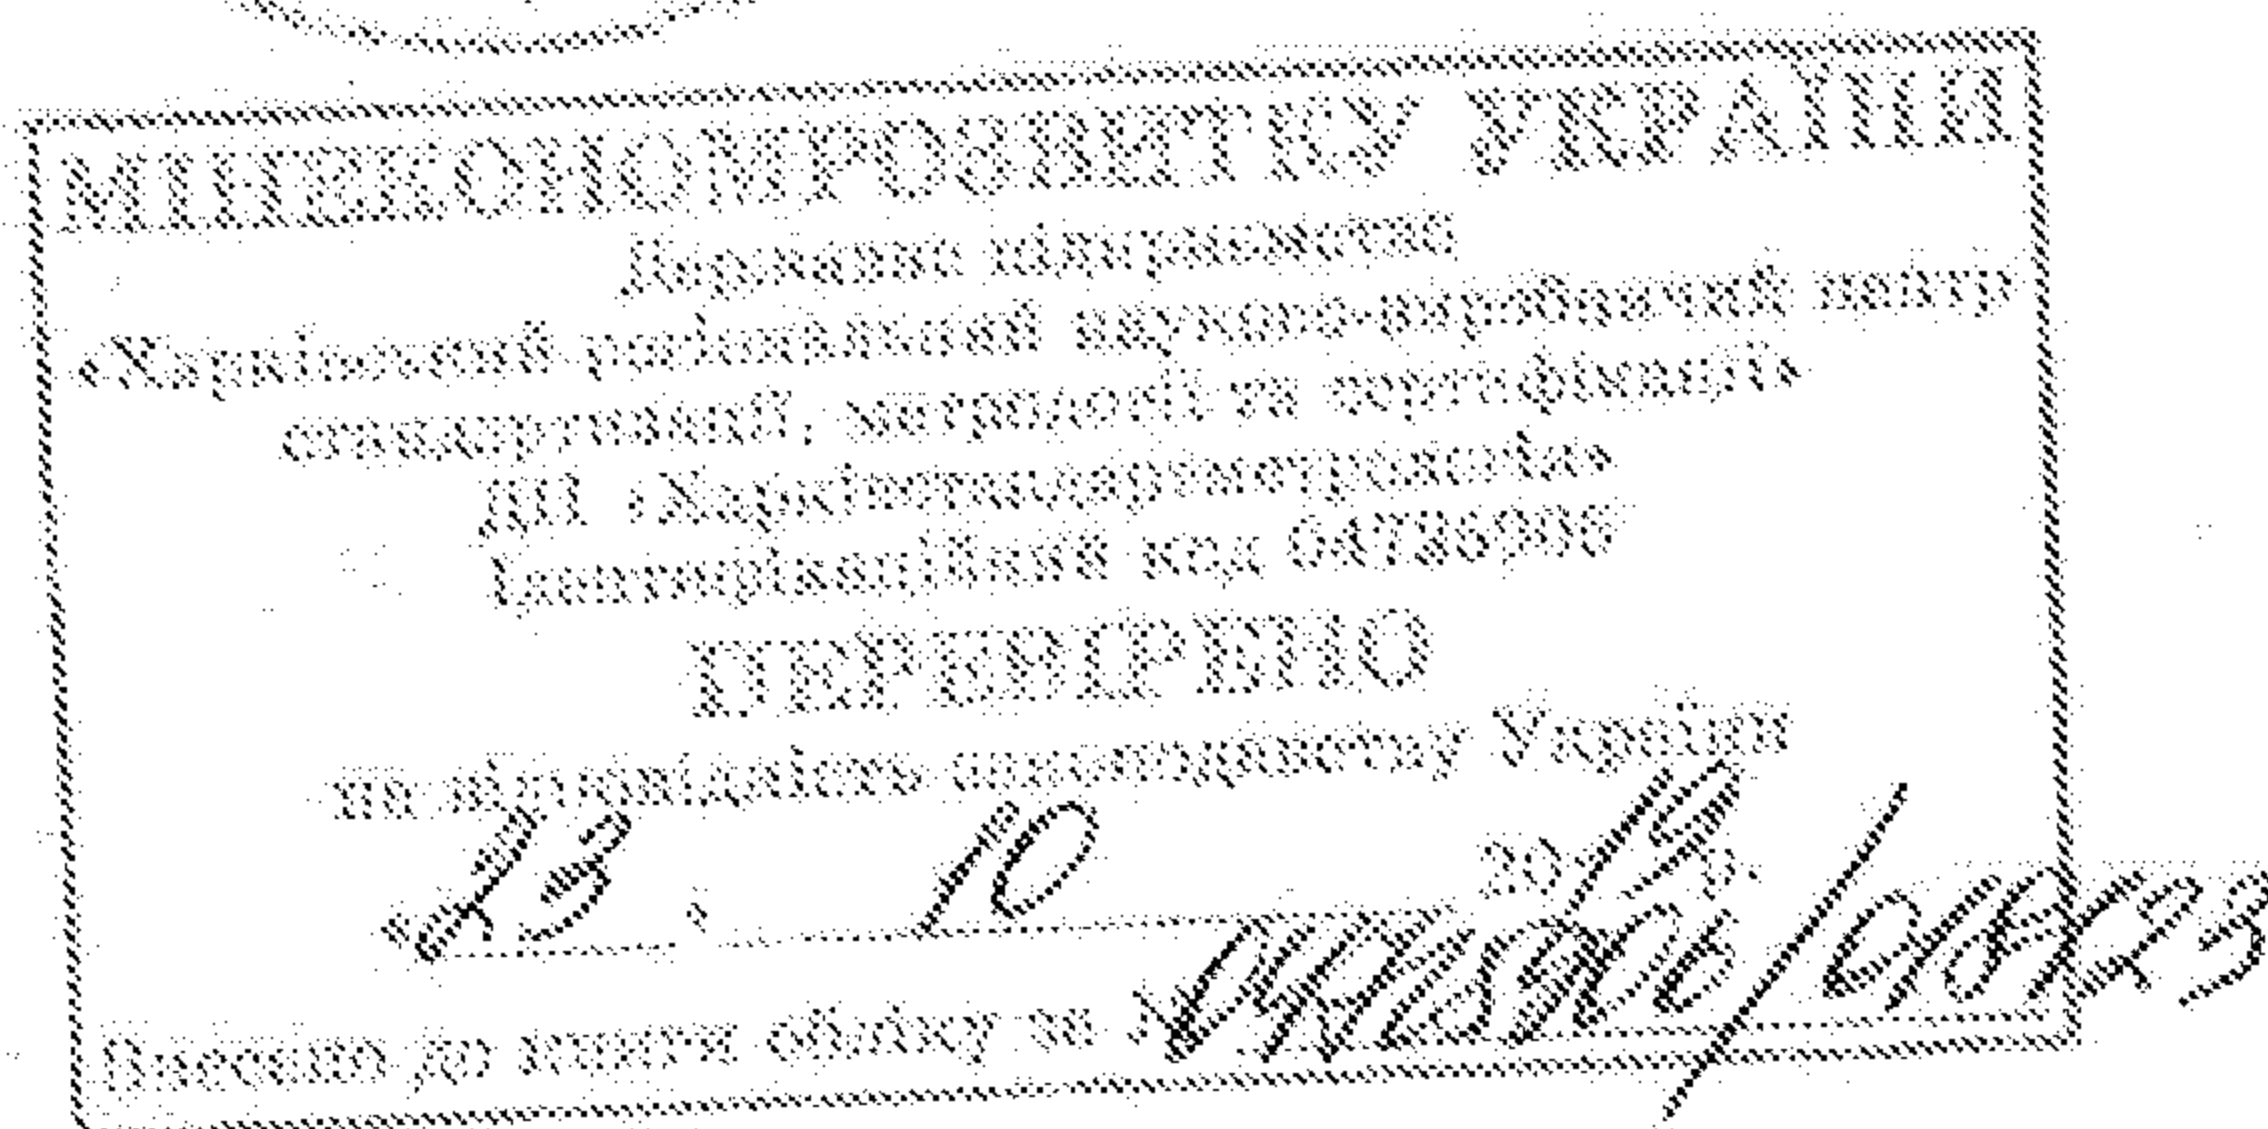 МІНЕКОНОМРОЗВИТКУ УКРАЇНИ
Державне підприємство
«Харківський регіональний науково-виробничий центр
стандартизації, метрології та сертифікації»
ДП «Харківстандартметрологія»
Ідентифікаційний код 04725906
ПЕРЕВІРЕНО
на відповідність законодавству України
«23» 10 2019 р.
Внесено до книги обліку за № 04725906/